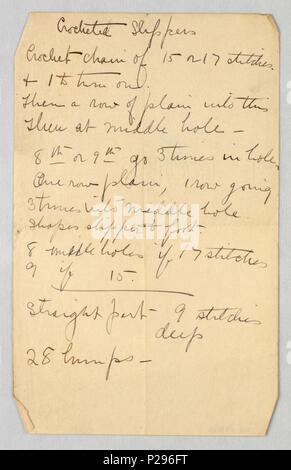 Crocheted Slippers
Crochet chain of 15 or 17 stitches.
& 1 to turn on.
Then a row of plain into this
Then at middle hole –
8th or 9th go 3 times in hole
One row plain, 1 row going
3 times into middle hole.
Shapes slipper to foot
8 middle holes if 17 stitches
9 if 15.
Straight part – 9 stitches
deep
28 bumps –
alamy
Image ID: P296FT
www.alamy.com